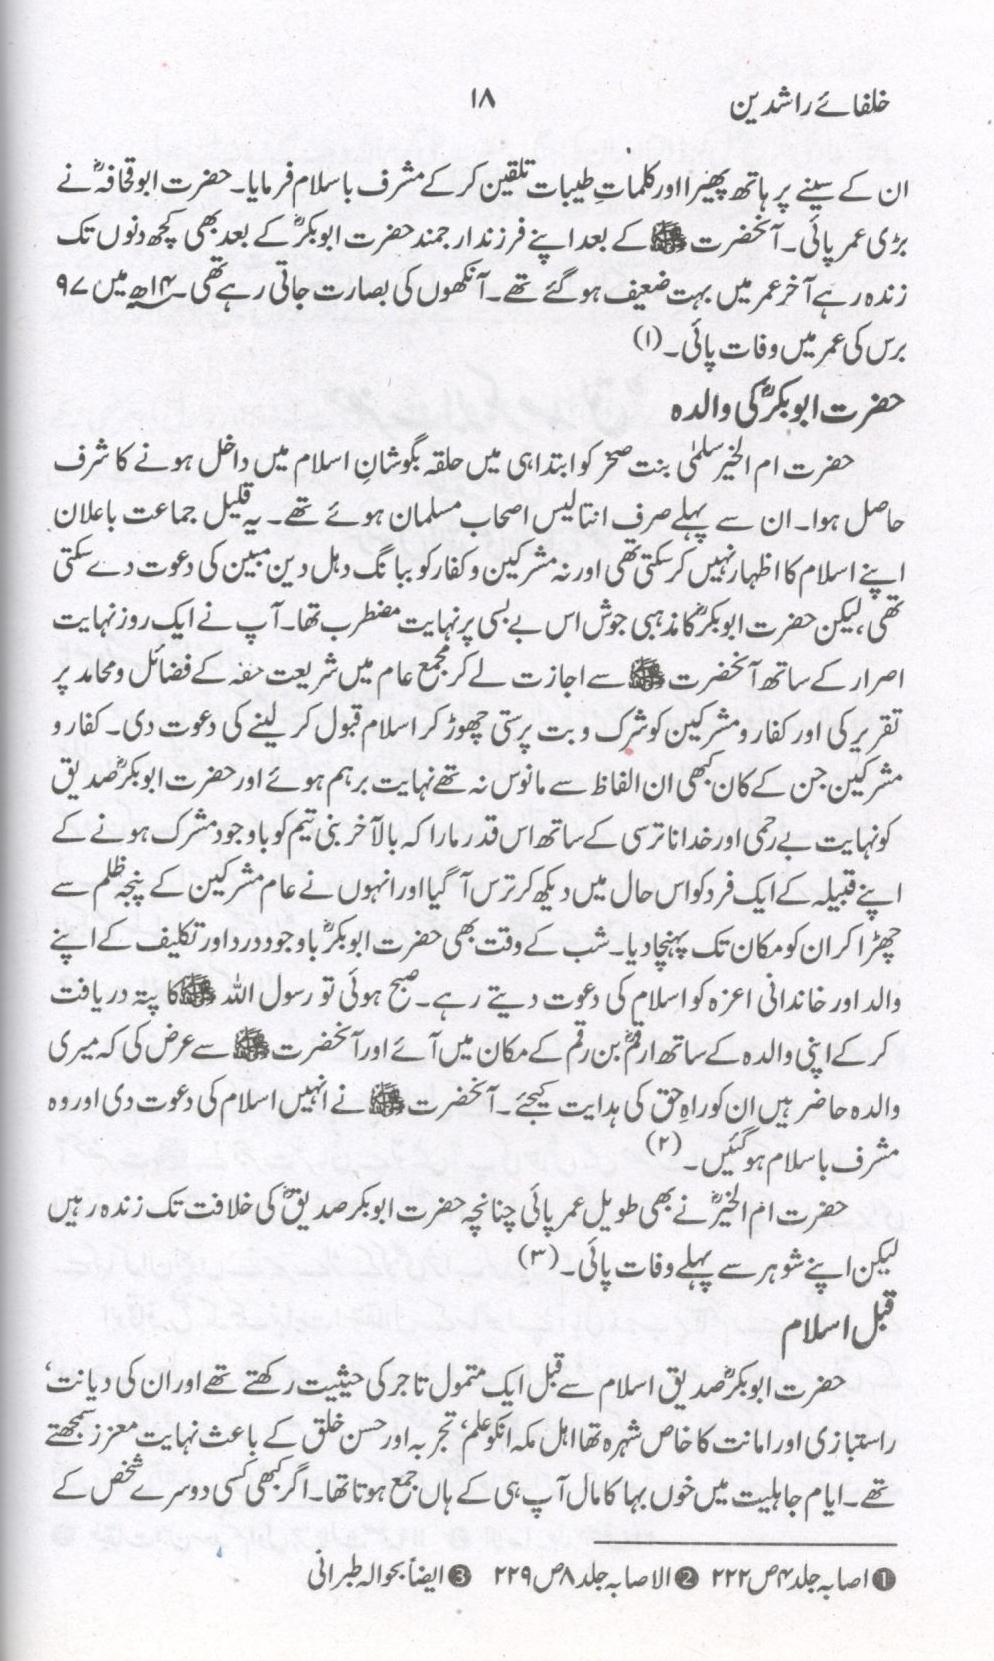 خلفائے راشدین ۱۸
ان کے سینے پر ہاتھ پھیرا اور کلماتِ طیبات تلقین کر کے مشرف باسلام فرمایا۔ حضرت ابو قحافہؓ نے
بڑی عمر پائی۔ آنحضرت ﷺ کے بعد اپنے فرزند ارجمند حضرت ابوبکرؓ کے بعد بھی کچھ دنوں تک
زندہ رہے آخر عمر میں بہت ضعیف ہو گئے تھے۔ آنکھوں کی بصارت جاتی رہے تھی۔ ۱۴ھ میں ۹۷
برس کی عمر میں وفات پائی۔ (۱)
حضرت ابوبکرؓ کی والدہ
حضرت ام الخیر سلمیٰ بنت صخر کو ابتدا ہی میں حلقہ بگوشانِ اسلام میں داخل ہونے کا شرف
حاصل ہوا۔ ان سے پہلے صرف انتالیس اصحاب مسلمان ہوئے تھے۔ یہ قلیل جماعت باعلان
اپنے اسلام کا اظہار نہیں کر سکتی تھی اور نہ مشرکین و کفار کو ببانگ دہل دین مبین کی دعوت دے سکتی
تھی، لیکن حضرت ابوبکرؓ کا مذہبی جوش اس بے بسی پر نہایت مضطرب تھا۔ آپ نے ایک روز نہایت
اصرار کے ساتھ آنحضرت ﷺ سے اجازت لے کر مجمع عام میں شریعت حقہ کے فضائل و محامد پر
تقریر کی اور کفار و مشرکین کو شرک و بت پرستی چھوڑ کر اسلام قبول کر لینے کی دعوت دی۔ کفار و
مشرکین جن کے کان کبھی ان الفاظ سے مانوس نہ تھے نہایت برہم ہوئے اور حضرت ابوبکرؓ صدیق
کو نہایت بے رحمی اور خدا ناترسی کے ساتھ اس قدر مارا کہ بالآخر بنی تیم کو باوجود مشرک ہونے کے
اپنے قبیلہ کے ایک فرد کو اس حال میں دیکھ کر ترس آ گیا اور انہوں نے عام مشرکین کے پنجہ ظلم سے
چھڑا کر ان کو مکان تک پہنچا دیا۔ شب کے وقت بھی حضرت ابوبکرؓ باوجود درد اور تکلیف کے اپنے
والد اور خاندانی اعزہ کو اسلام کی دعوت دیتے رہے۔ صبح ہوئی تو رسول اللہ ﷺ کا پتہ دریافت
کر کے اپنی والدہ کے ساتھ ارقمؓ بن رقم کے مکان میں آئے اور آنحضرت ﷺ سے عرض کی کہ میری
والدہ حاضر ہیں ان کو راہِ حق کی ہدایت کیجئے۔ آنحضرت ﷺ نے انہیں اسلام کی دعوت دی اور وہ
مشرف باسلام ہو گئیں۔ (۲)
حضرت ام الخیرؓ نے بھی طویل عمر پائی چنانچہ حضرت ابوبکر صدیقؓ کی خلافت تک زندہ رہیں
لیکن اپنے شوہر سے پہلے وفات پائی۔ (۳)
قبل اسلام
حضرت ابوبکرؓ صدیق اسلام سے قبل ایک متمول تاجر کی حیثیت رکھتے تھے اور ان کی دیانت،
راستبازی اور امانت کا خاص شہرہ تھا اہل مکہ انکو علم، تجربہ اور حسن خلق کے باعث نہایت معزز سمجھتے
تھے۔ ایام جاہلیت میں خوں بہا کا مال آپ ہی کے ہاں جمع ہوتا تھا۔ اگر کبھی کسی دوسرے شخص کے
❶ اصابہ جلد ۴ ص ۲۲۲ ❷ الاصابہ جلد ۸ ص ۲۲۹ ❸ ایضاً بحوالہ طبرانی